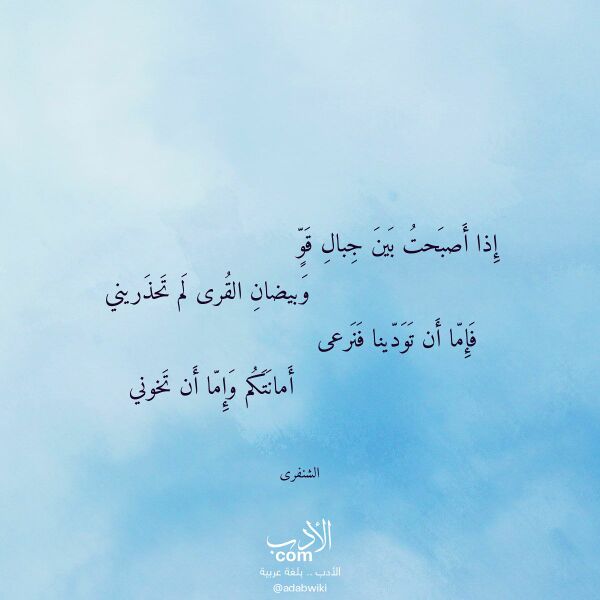 إِذا أَصبَحتُ بَينَ جِبالِ قَوٍّ
وَبيضانِ القُرى لَم تَحذَريني
فَإِمّا أَن تَوَدّينا فَنَرعى
أَمانَتَكُم وَإِمّا أَن تَخوني
الشنفرى
الأدب
com
الأدب .. بلغة عربية
@adabwiki